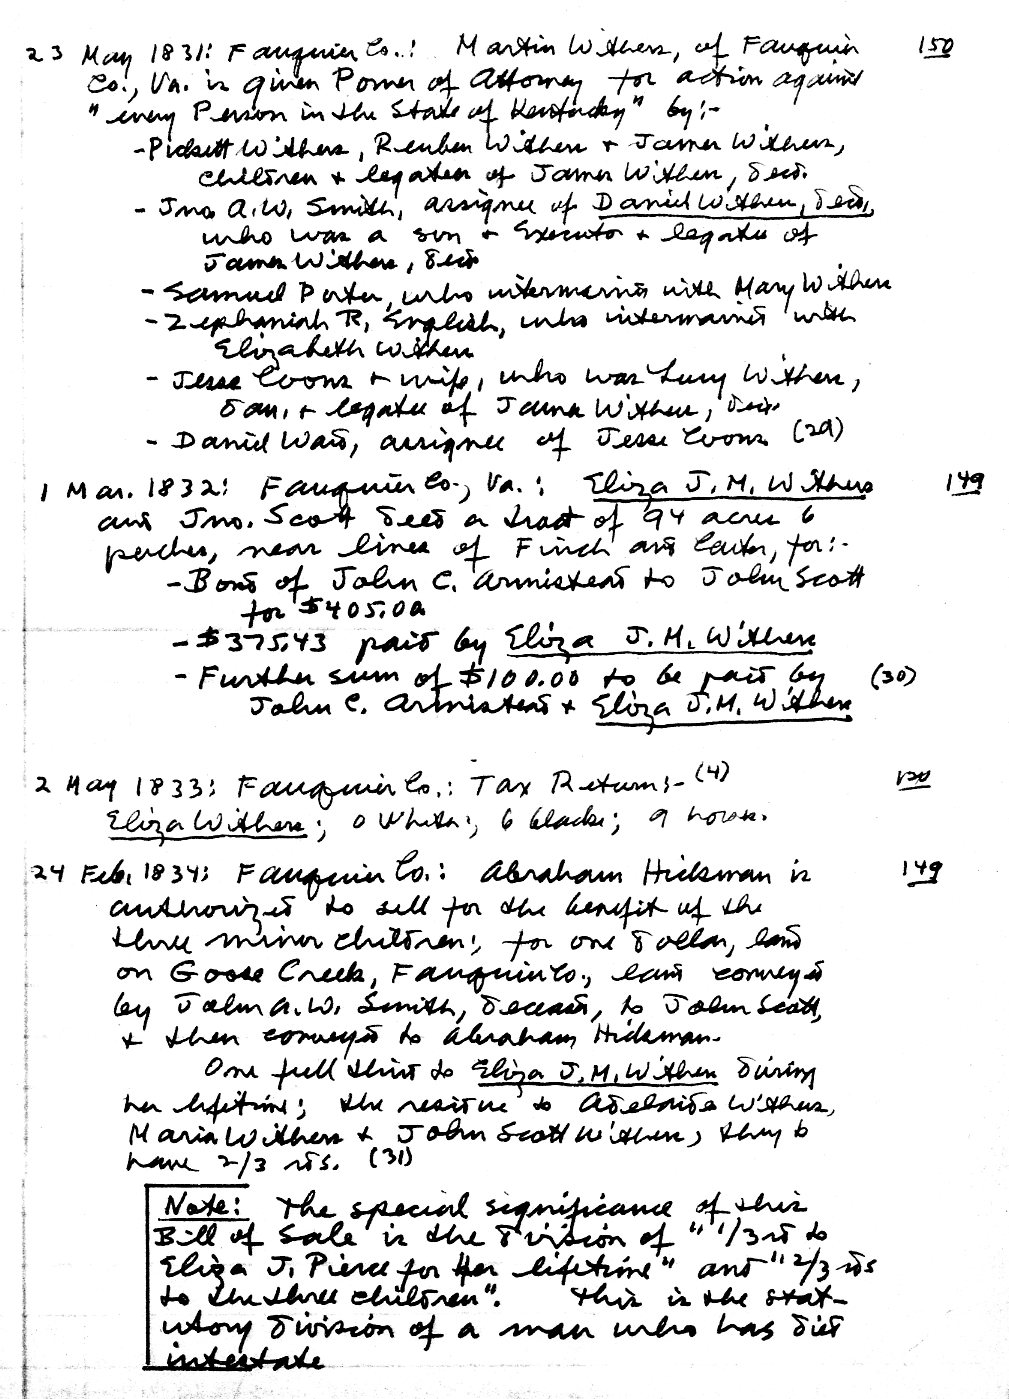 23 May 1831: Fauquier Co.: Martin Withers, of Fauquier 150
Co., Va. is given Power of Attorney for action against
"every Person in the State of Kentucky" by:-
-Pickett Withers, Reuben Withers + James Withers,
children + legatees of James Withers, decd.
- Jno A.W. Smith, assignee of Daniel Withers, decd,
who was a son + Executor + legatee of
James Withers, decd
- Samuel Porter, who intermarried with Mary Withers
- Zephaniah R. English, who intermarried with
Elizabeth Withers
- Jesse Coons + wife, who was Lucy Withers,
dau. + legatee of James Withers, decd.
- Daniel Ward, assignee of Jesse Coons (29)
1 Mar. 1832: Fauquier Co., Va.: Eliza J.M. Withers 149
and Jno. Scott deed a tract of 94 acres 6
perches, near lines of Finch and Carter, for:-
-Bond of John C. Armistead to John Scott
for $405.00
-$375.43 paid by Eliza J.M. Withers
- Further sum of $100.00 to be paid by (30)
John C. Armistead + Eliza J.M. Withers
2 May 1833: Fauquier Co.: Tax Returns- (4) 120
Eliza Withers; 0 White; 6 blacks; 9 horses.
24 Feb. 1834: Fauquier Co.: Abraham Hickman is 149
authorized to sell for the benefit of the
three minor children; for one dollar, land
on Goose Creek, Fauquier Co., land conveyed
by John A.W. Smith, deceased, to John Scott,
+ then conveyed to Abraham Hickman.
One full third to Eliza J.M. Withers during
her lifetime; the residue to Adelaide Withers,
Maria Withers + John Scott Withers, they to
have 2/3 rds. (31)
Note: The special significance of this
Bill of Sale is the division of "1/3rd to
Eliza J. Pierce for Her lifetime" and "2/3 rds
to the three children". This is the stat-
utory division of a man who has died
intestate